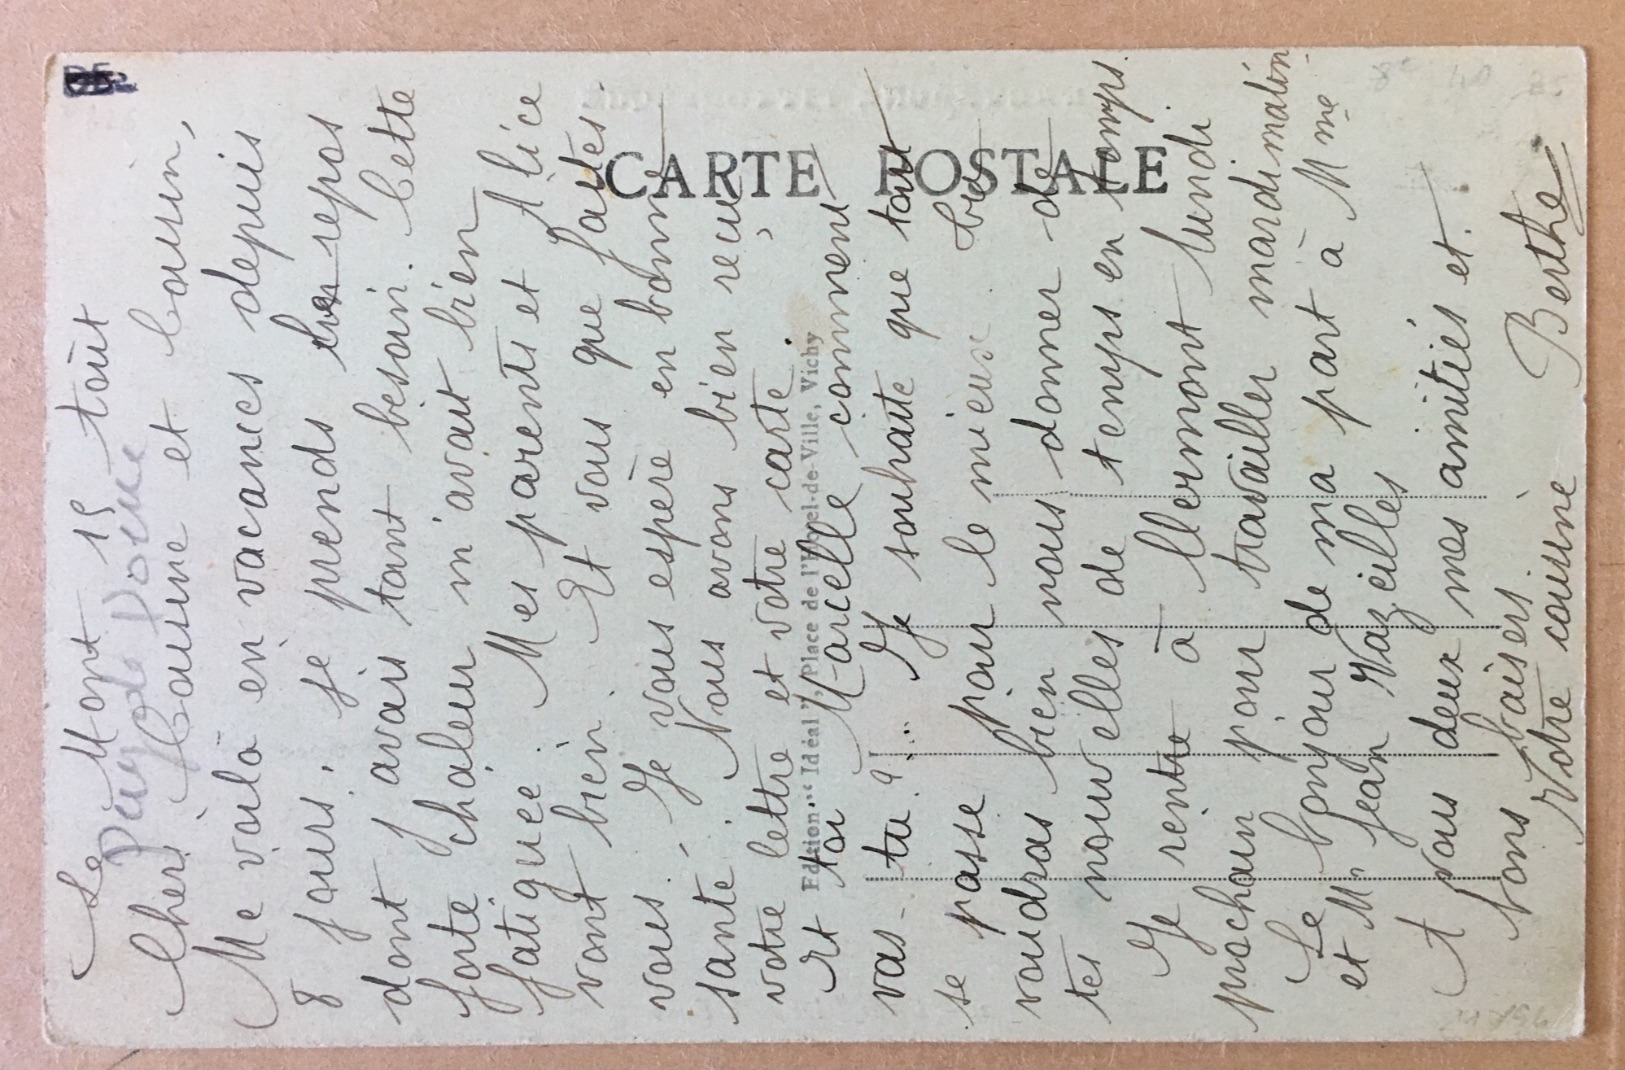 Le Mont 15 Août
Puy de Dôme
Chers Cousine et Cousin,
Me voilà en vacances depuis
8 jours. Je prends du repos
dont j'avais tant besoin. Cette
forte chaleur m'avait bien
fatiguée. Mes parents et Alice
vont bien. Et vous que faites
vous. Je vous espère en bonne
santé. Nous avons bien reçu
votre lettre et votre carte.
Et toi Marcelle comment
vas-tu? Je souhaite que tout
se passe pour le mieux. Tu
voudras bien nous donner de
tes nouvelles de temps en temps.
Je rentre à Clermont lundi
prochain pour travailler mardi matin.
Le bonjour de ma part à Mme
et Mr Jean Vazeilles
A vous deux mes amitiés et
bons baisers.
Votre cousine Berthe
CARTE POSTALE
Edition "Idéal", Place de l'Hôtel-de-Ville, Vichy